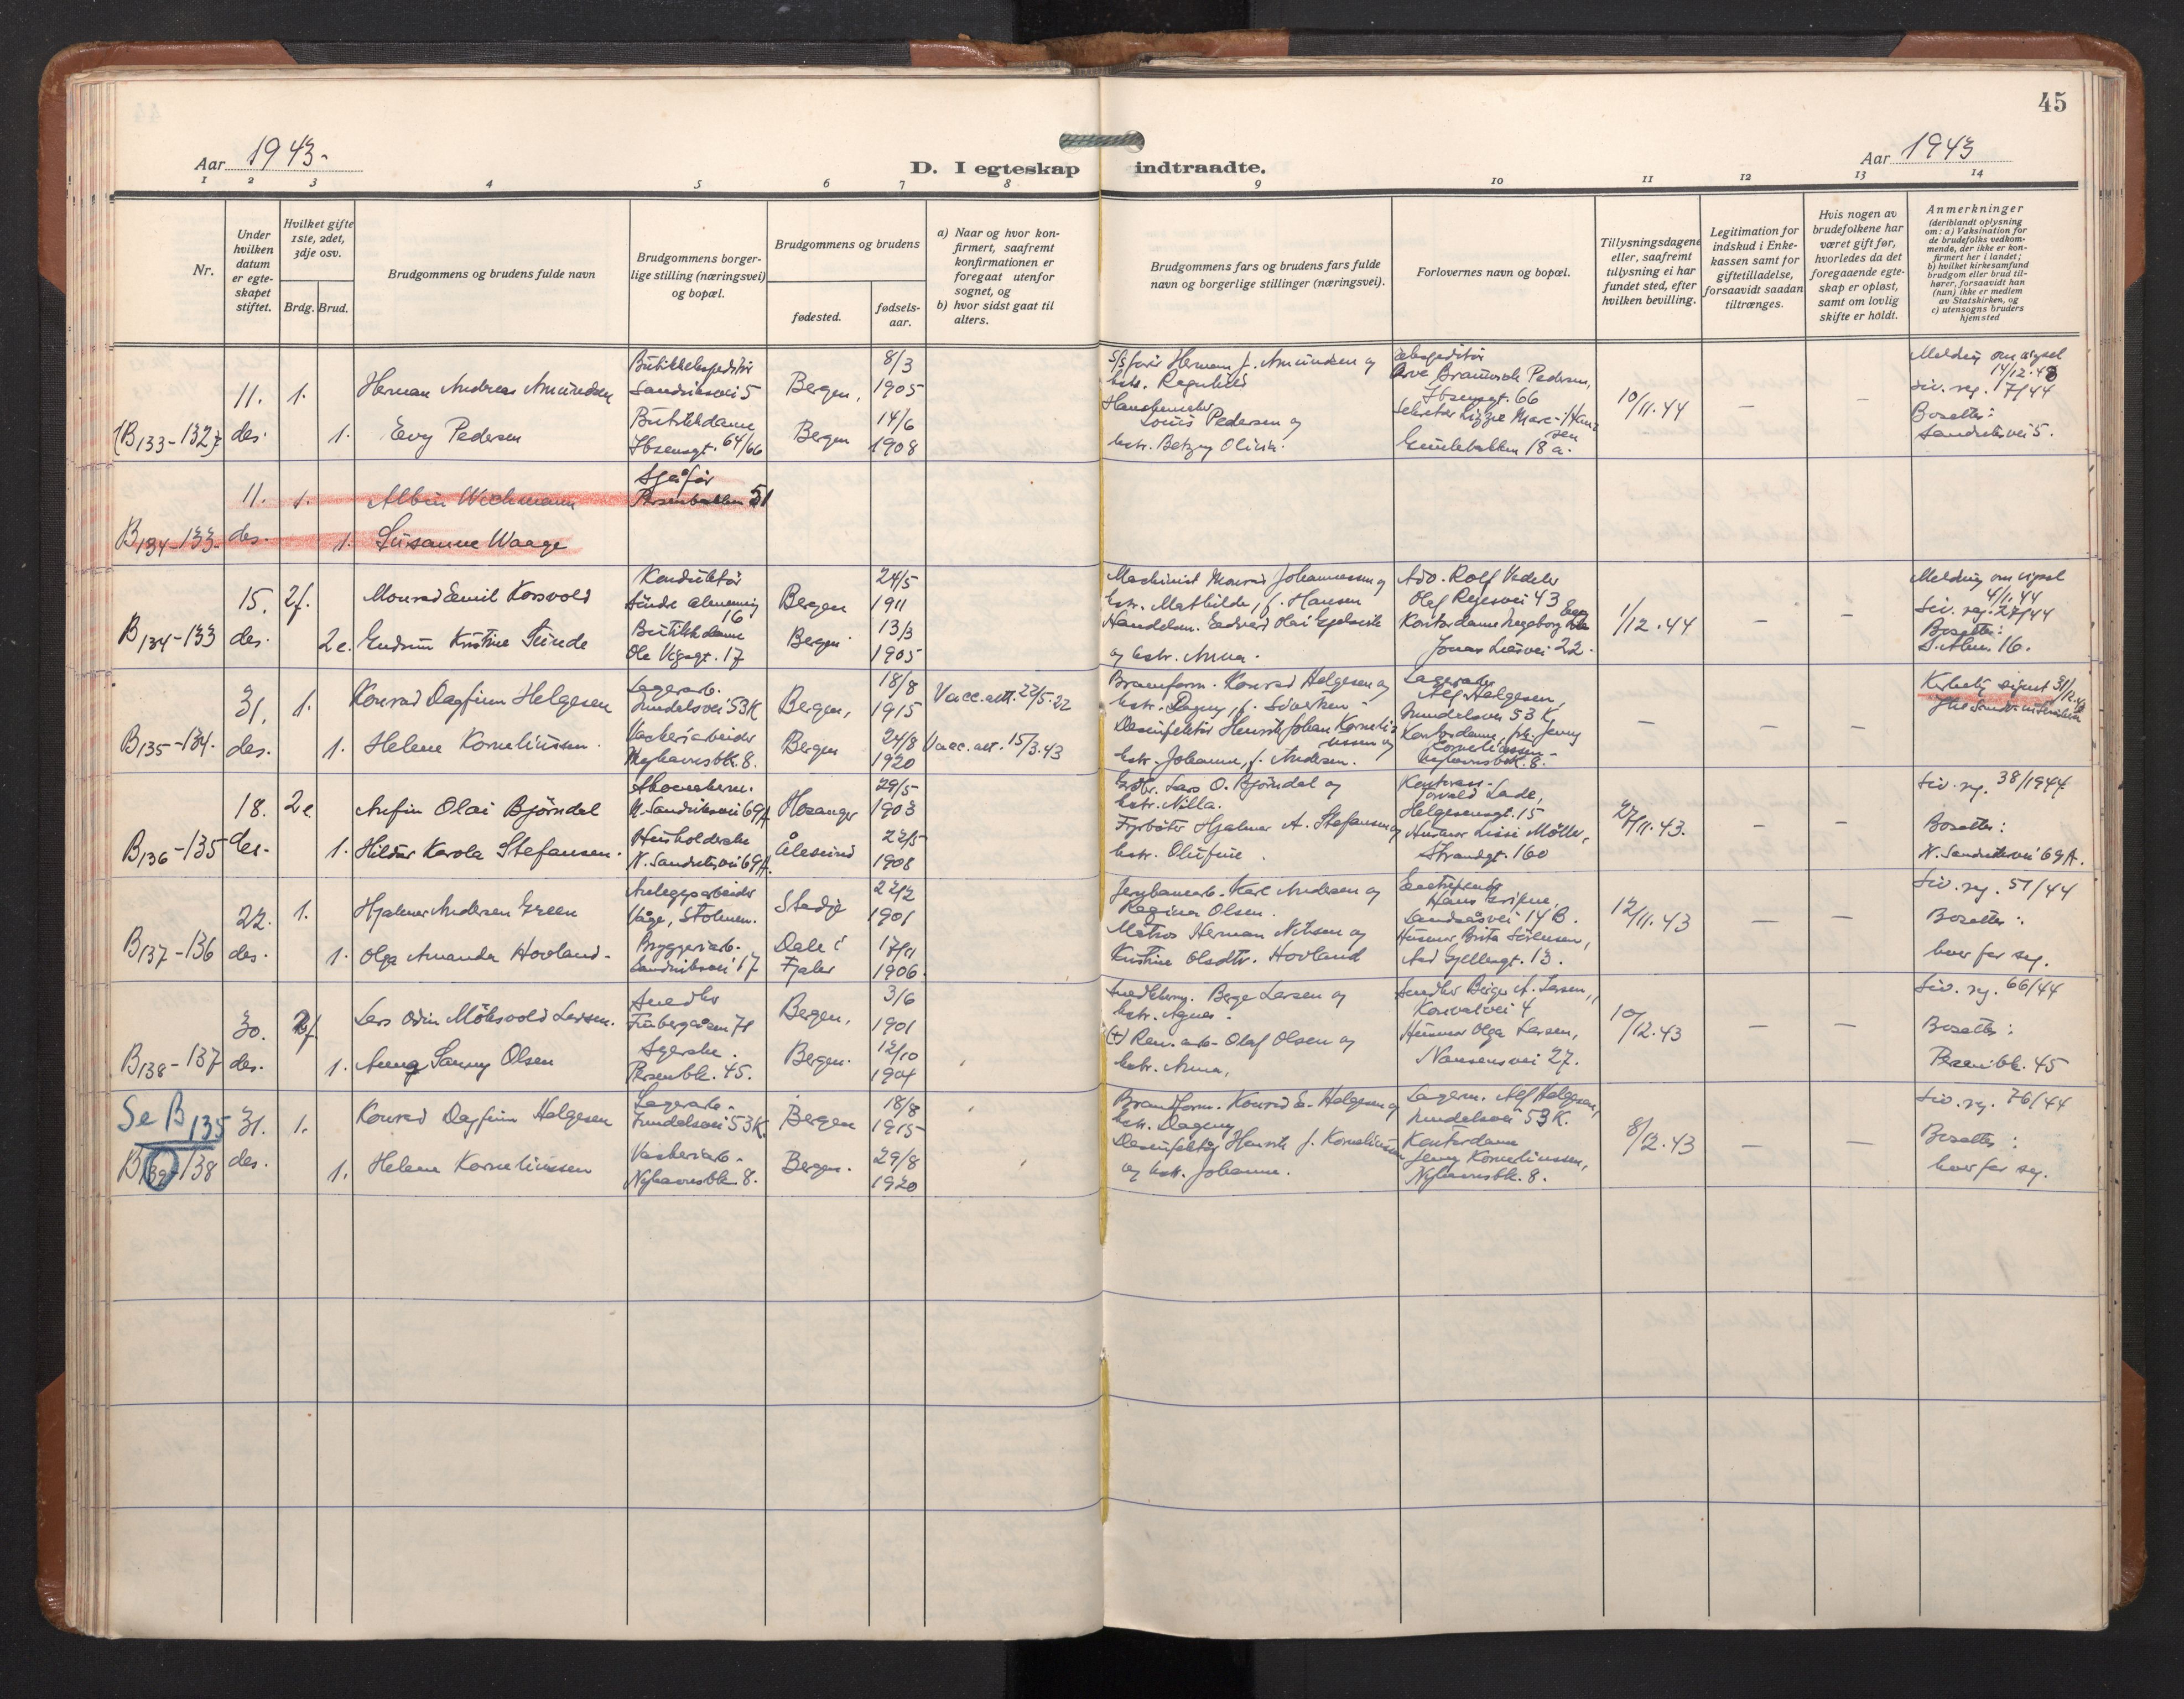 45
Aar 1943.
D. I egteskap indtraadte.
Aar 1943
1 2 3 4 5 6 7 8 9 10 11 12 13 14
Nr.
Under hvilken datum er egte-skapet stiftet.
Hvilket gifte 1ste, 2det, 3dje osv.
Brdg. Brud.
Brudgommens og brudens fulde navn
Brudgommens borger-lige stilling (næringsvei) og bopæl.
Brudgommens og brudens
fødested.
fødsels-aar.
a) Naar og hvor kon-firmert, saafremt konfirmationen er foregaat utenfor sognet, og
b) hvor sidst gaat til alters.
Brudgommens fars og brudens fars fulde navn og borgerlige stillinger (næringsvei).
Forlovernes navn og bopæl.
Tillysningsdagene eller, saafremt tillysning ei har fundet sted, efter hvilken bevilling.
Legitimation for indskud i Enke-kassen samt for giftetilladelse, forsaavidt saadan tiltrænges.
Hvis nogen av brudefolkene har været gift før, hvorledes da det foregaaende egte-skap er opløst, samt om lovlig skifte er holdt.
Anmerkninger (deriblandt oplysning om: a) Vaksination for de brudefolks vedkom-mende, der ikke er kon-firmert her i landet; b) hvilket kirkesamfund brudgom eller brud til-hører, forsaavidt han (hun) ikke er medlem av Statskirken, og c) utensogns bruders hjemsted
(B133-132)
11. des.
1.
Herman Andreas Amundsen
Butikkekspeditør
Sandviksvei 5
Bergen,
8/3 1905
S/s fører Herman J. Amundsen og
hstr. Ragnhild
Arve Pedersen,
Ibsensgt. 66
10/11.44
—
—
Melding om vigsel
14/12.43
Siv. reg. 17/44
Bosetter:
Sandviksvei 5.
1.
Evy Pedersen
Butikkdame
Ibsensgt. 64/66
Bergen
14/6 1908
Louis Pedersen og
hstr. Betzy Olivia.
18 a.
B134-133-
11. des.
1.
Albin Wichmann
Sjåfør
Persenbakken 51
1.
Susanne Waage
B134-133
15. des.
2f.
Monrad Emil Korsvold
Konduktør
Søndre almenning 16
Bergen
24/5 1911
Maskinist Monrad Johannessen og
hstr. Mathilde, f. Hansen
Adv. Rolf Vedeler
Olaf Ryesvei 43
1/12.44
—
—
Melding om vigsel
4/1.44
Siv. reg. 27/44
Bosetter:
S. Alm. 16.
2e.
Gudrun Kristine Sunde
Butikkdame
Ole Vigsgt. 17
Bergen
13/3 1905
Handelsm. Edvard Olai
og hstr. Anna.
Kontordame Ingeborg
Jonas Liesvei 22.
B135-134.
31. des.
1.
Konrad Dagfinn Helgesen
Lagerarb.
53K
Bergen,
18/8 1915
Vacc.att. 22/5.22
Konrad Helgesen og
hstr. Dagny, f.
Lagerarb.
Alf Helgesen,
53 K,
—
—
—
Kirkelig signet 31/12.43
1.
Helene Korneliussen.
Vaskeriarbeider
Nyhavnsbk. 8.
Bergen
24/8 1920
Vacc.att. 15/3.43
Desinfektør Henrik Johan Korneliussen og
hstr. Johanne, f. Andersen.
Kontordame, frk. Jenny
Korneliussen
Nyhavnsbk. 8.
B136-135
18. des.
2e
Arfin Olai Bjørndal
N. Sandviksvei 69A
Hosanger
29/5 1903
Gbr. Lars O. Bjørndal og
hstr. Nilla.
Lade,
Helgesensgt. 15
27/11.43.
—
—
Siv. reg. 38/1944
Bosetter:
N. Sandviksvei 69A.
1.
Hildur Karola Stefansen.
Husholderske
N. Sandviksvei 69A.
Ålesund
22/5 1908
Fyrbøter Hjalmar A. Stefansen og
hstr. Olufine.
Husmor Lissi Møller,
Strandgt. 160
B137-136
22. des.
1.
Hjalmar Andersen Green
Anleggsarbeider
Våge, Stolmen.
Stedje
22/2 1901
Jernbanearb. Karl Andersen og
Regina Olsen.
Hans
Landåsvei 14 B.
12/11.43
—
—
Siv. reg. 51/44
Bosetter:
hver for seg.
1.
Olga Amanda Hovland.
Bryggeriarb.
Sandviksvei 17
Dale i Fjaler
17/11 1906.
Matros Herman Nilsen og
Kristine Olsdtr. Hovland
Husmor Brita Sørensen,
13.
B138-137
30. des.
2f
Lars Odin Møksvold Larsen.
Snedker
71
Bergen,
3/6 1901
Snedkerm. Berge Larsen og
hstr. Agnes.
Snedker Birger A. Larsen,
4
10/12.43
—
—
Siv. reg. 66/44
Bosetter:
Persenbk. 45
1.
Anna Fanny Olsen
Syerske.
Persenbk. 45.
Bergen.
12/10 1901
(+) Ren. arb. Olaf Olsen og
hstr. Anna,
Husmor Olga Larsen,
Nansensvei 27.
Se B135
B139-138
31. des.
1.
Konrad Dagfinn Helgesen
Lagerarb.
53K.
Bergen
18/8 1915
Brandform. Konrad E. Helgesen og
hstr. Dagny
Lagerm. Alf Helgesen,
53 K.
8/12.43
—
—
Siv. reg. 76/44
Bosetter:
hver for seg.
1.
Helene Korneliussen
Vaskeriarb.
Nyhavnsbk. 8.
Bergen.
29/8 1920
Desinfektør Henrik J. Korneliussen
og hstr. Johanne.
Kontordame
Jenny Korneliussen,
Nyhavnsbk. 8.